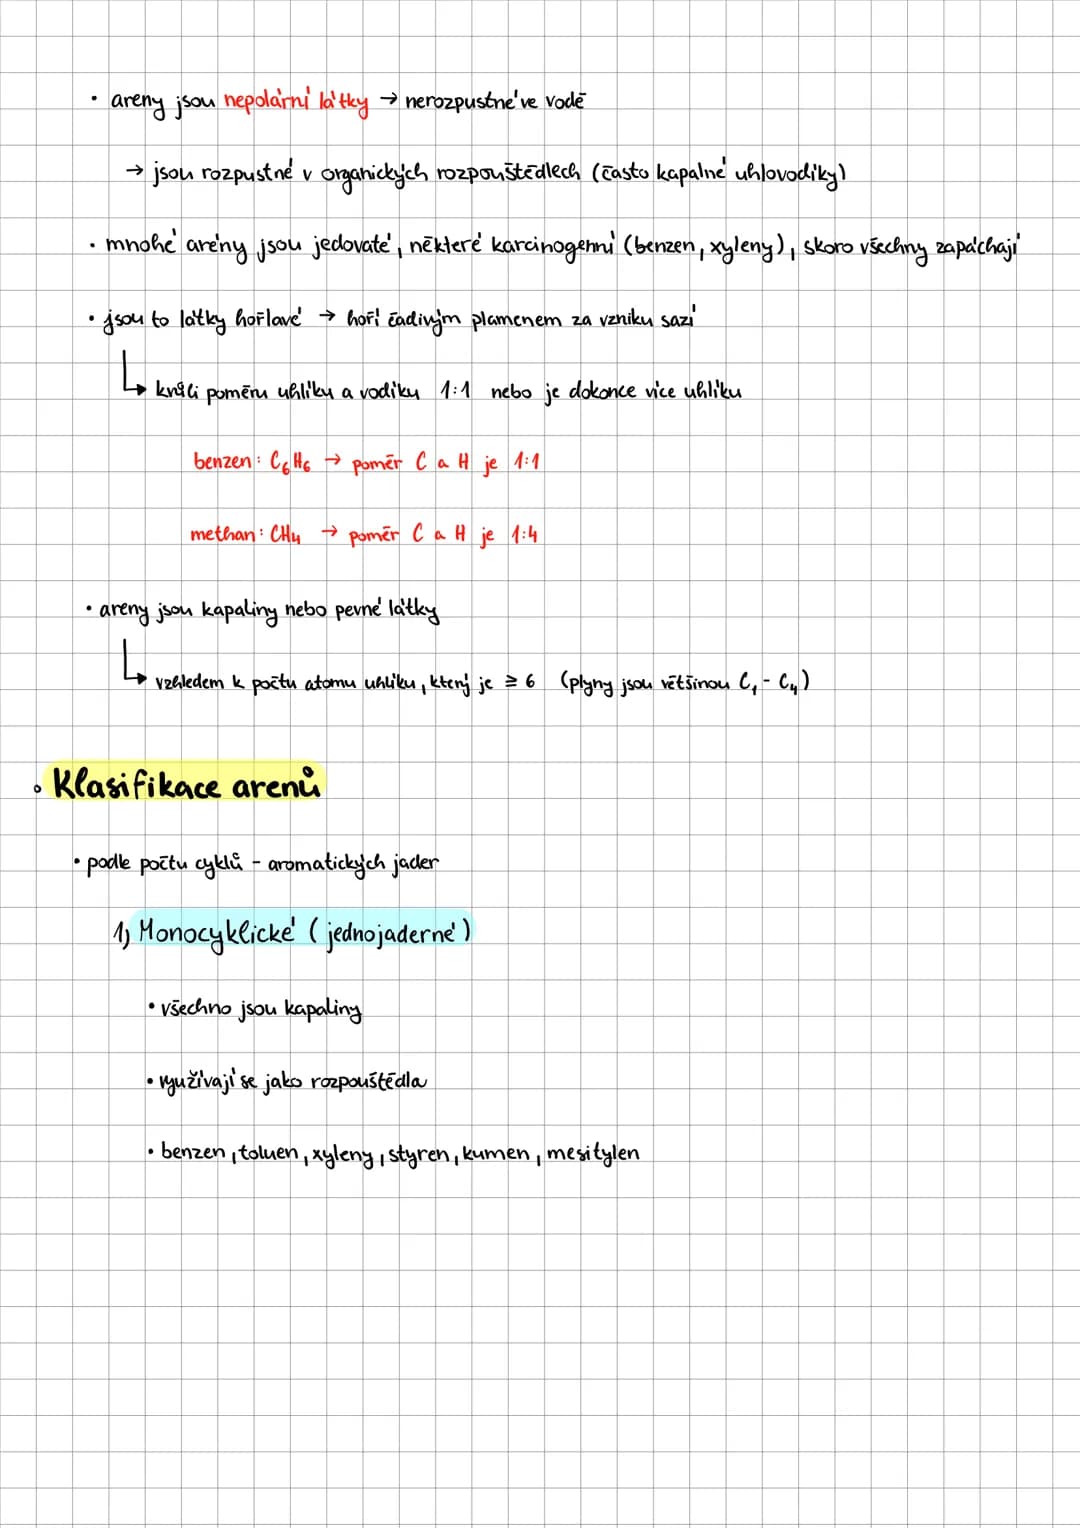 • areny jsou nepolární látky → nerozpustné ve vodě
→ jsou rozpustné v organických rozpouštědlech (často kapalné uhlovodíky)
• mnohé arény jsou jedovaté, některé karcinogenní (benzen, xyleny), skoro všechny zapáchají
• jsou to látky hořlavé → hoří čadivým plamenem za vzniku sazí
↳ kvůli poměru uhlíku a vodíku 1:1 nebo je dokonce více uhlíku
benzen: C₆H₆ → poměr C a H je 1:1
methan: CH₄ → poměr C a H je 1:4
• areny jsou kapaliny nebo pevné látky
↳ vzhledem k počtu atomu uhlíku, který je ≥ 6 (plyny jsou většinou C₁ - C₄)
Klasifikace arenů
• podle počtu cyklů - aromatických jader
1) Monocyklické (jednojaderné)
• všechno jsou kapaliny
• využívají se jako rozpouštědla
• benzen, toluen, xyleny, styren, kumen, mesitylen